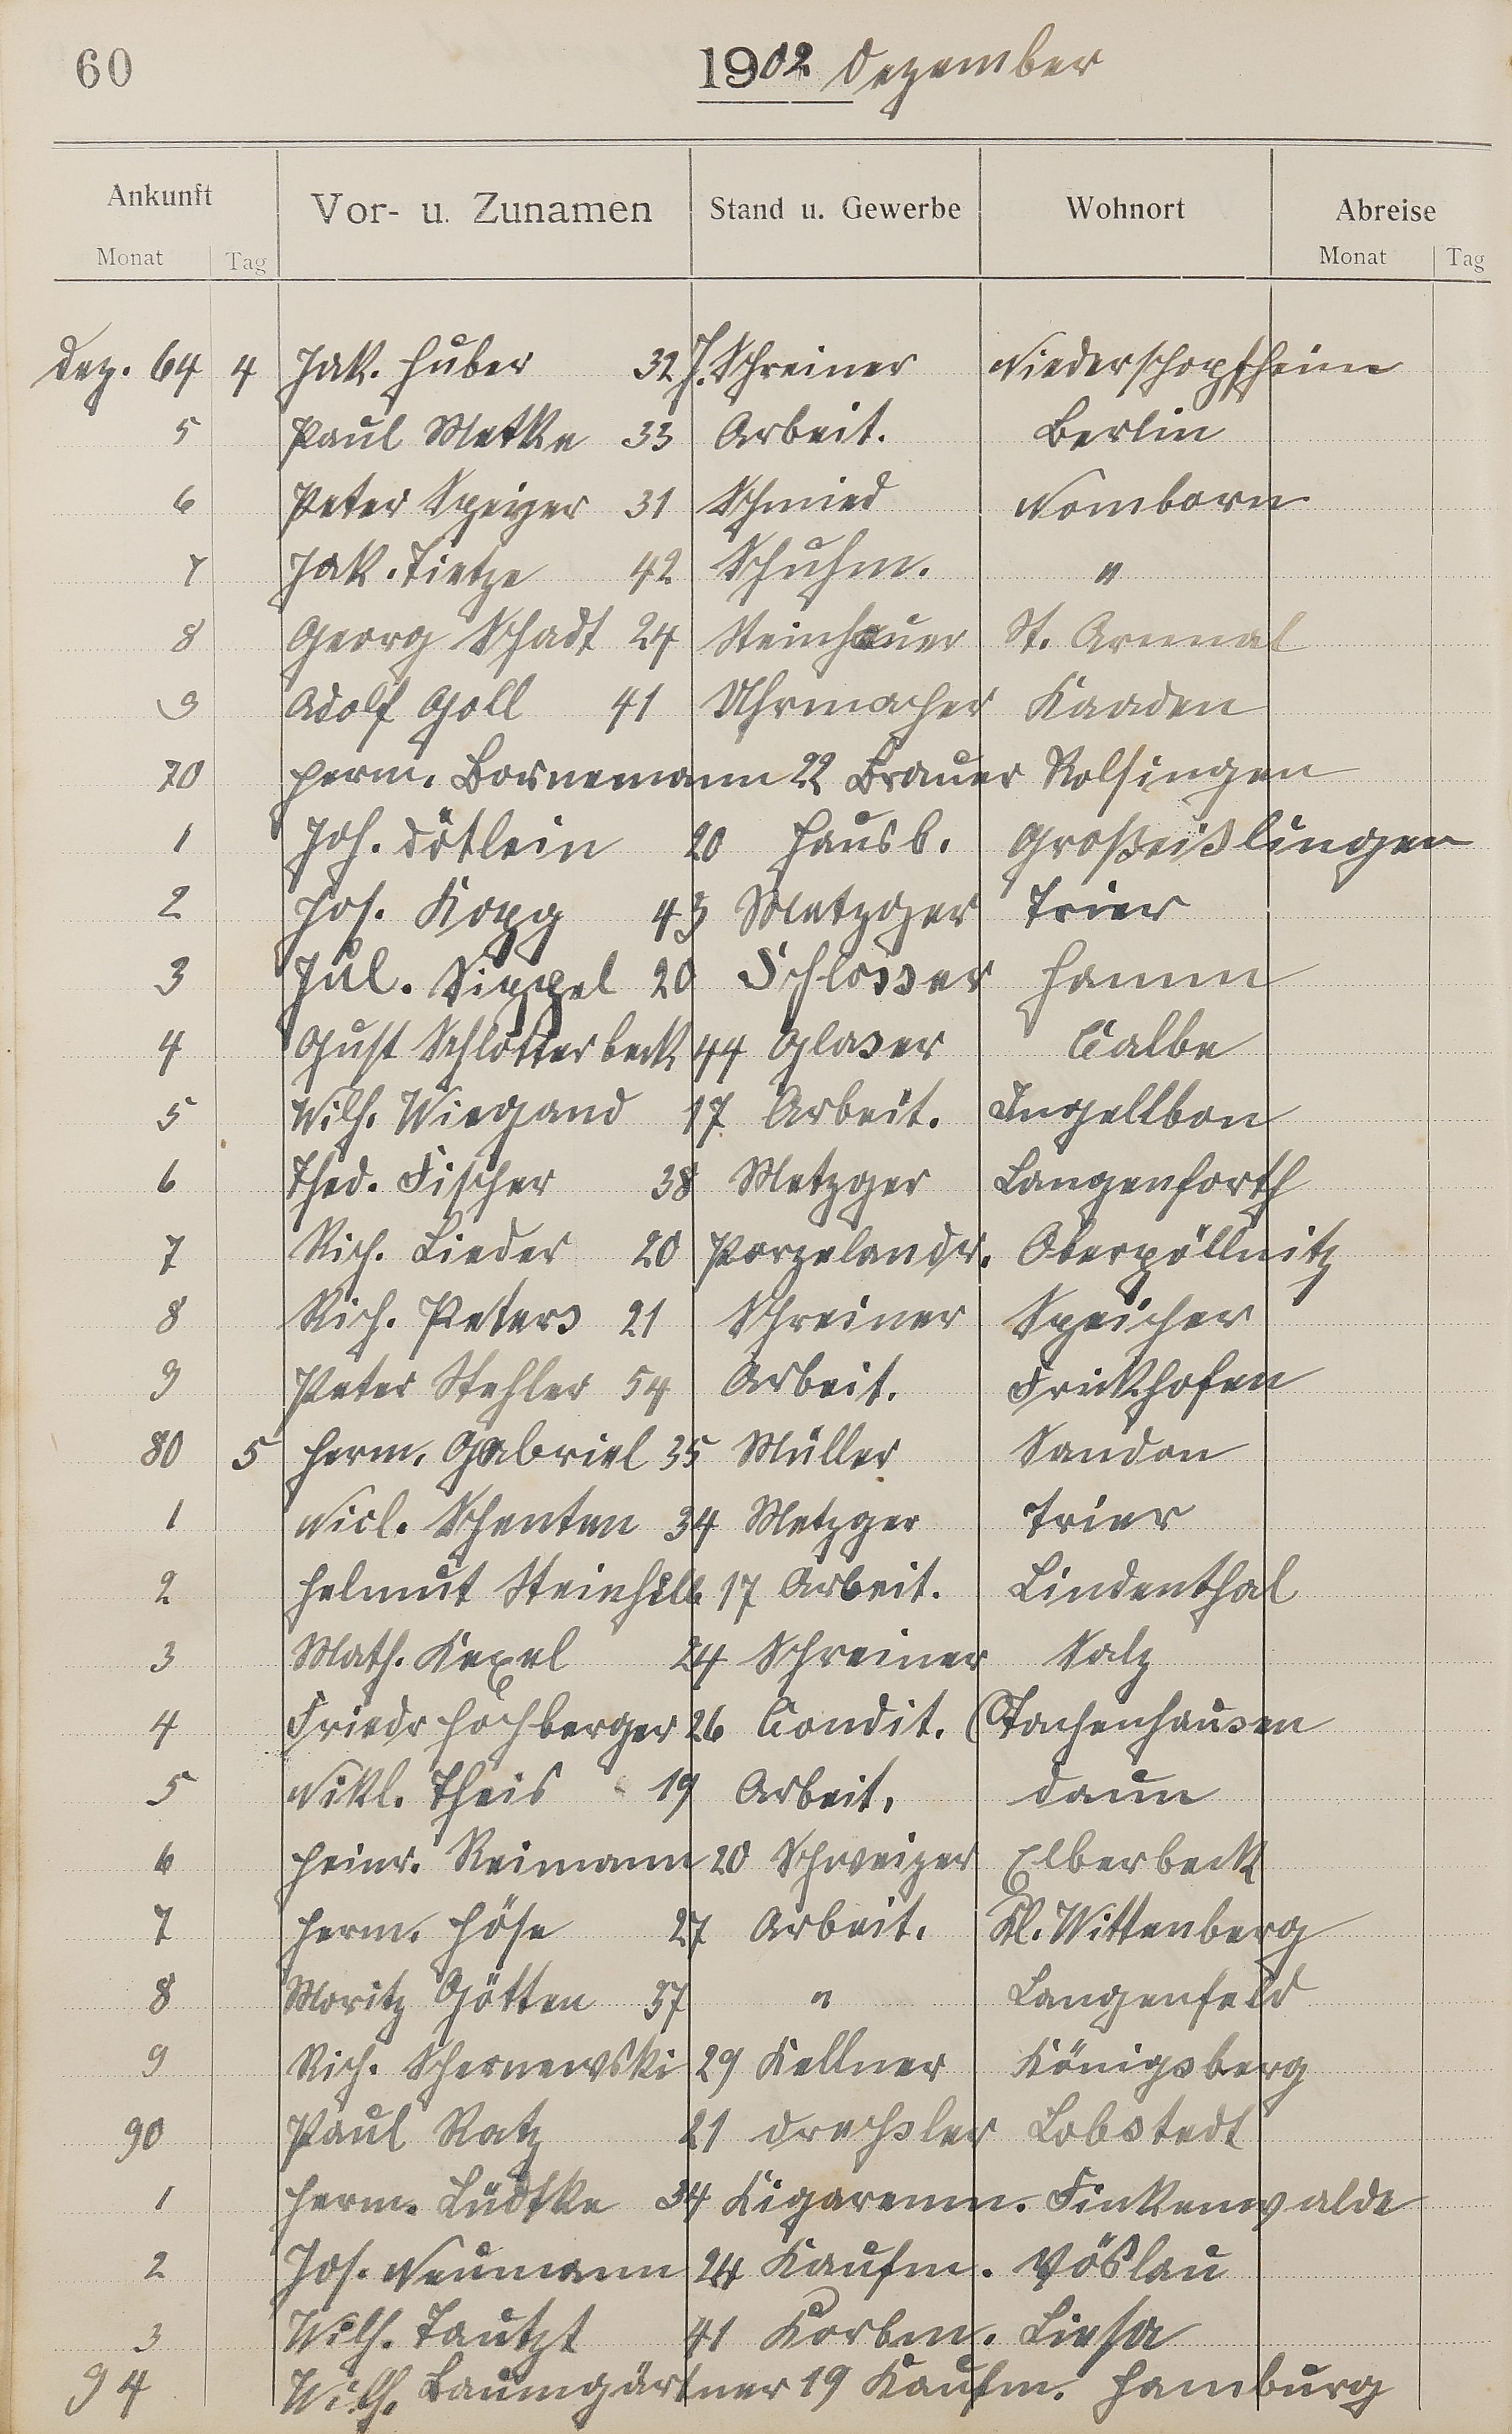 60
1902 Dezember
Ankunft Vor- u. Zunamen Stand u. Gewerbe Wohnort Abreise
Monat Tag Monat Tag
Dez. 64 4 Jak. Huber 32 J. Schreiner Niederschopfheim
5 Paul Metke 33 Arbeit. Berlin
6 Peter Speiger 31 Schmied Nomborn
7 Jak. Tietze 42 Schuhm. "
8 Georg Schadt 24 Steinhauer St. Arnual
9 Adolf Goll 41 Uhrmacher Kaaden
70 Herm. Bornemann 22 Brauer Rolfingen
1 Joh. Dötlein 20 Hausb. Großeißlingen
2 Jos. Kopp 43 Metzger Trier
3 Jul. Sippel 20 Schlosser Hamm
4 Gust Schlotterbeck 44 Glaser Calbe
5 Wilh. Wiegand 17 Arbeit. Ingellbon
6 Thed. Fischer 38 Metzger Langenforth
7 Rich. Lieder 20 Porzelandr. Oberpöllnitz
8 Rich. Peters 21 Schreiner Speicher
9 Peter Stehler 54 Arbeit. Frickhofen
80 5 Herm. Gabriel 35 Müller Sandon
1 Nicl. Schenten 34 Metzger Trier
2 Helmut Steinhilb 17 Arbeit. Lindenthal
3 Math. Kexel 24 Schreiner Salz
4 Friedr Hochberger 26 Condit. Tachenhausen
5 Nikl. Theis 19 Arbeit. Daun
6 Heinr. Reimann 20 Schweizer Elberbeck
7 Herm. Höse 27 Arbeit. Kl. Wittenberg
8 Moritz Götten 37 " Langenfeld
9 Rich. Schernewski 29 Kellner Königsberg
90 Paul Ratz 21 Drechsler Lobstedt
1 Herm. Lüdtke 34 Zigarenm. Finkenwalde
2 Jos. Neumann 24 Kaufm. Vöslau
3 Wilh. Tautzt 41 Korbm. Liesa
94 Wilh. Baumgärtner 19 Kaufm. Hamburg